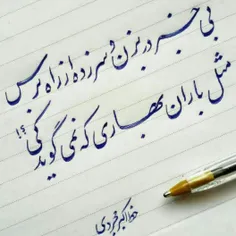 بی خبر در بزن و سرزده از راه برس
مثل باران بهاری که نمی گوید کی؟!
خط اکبر خردی